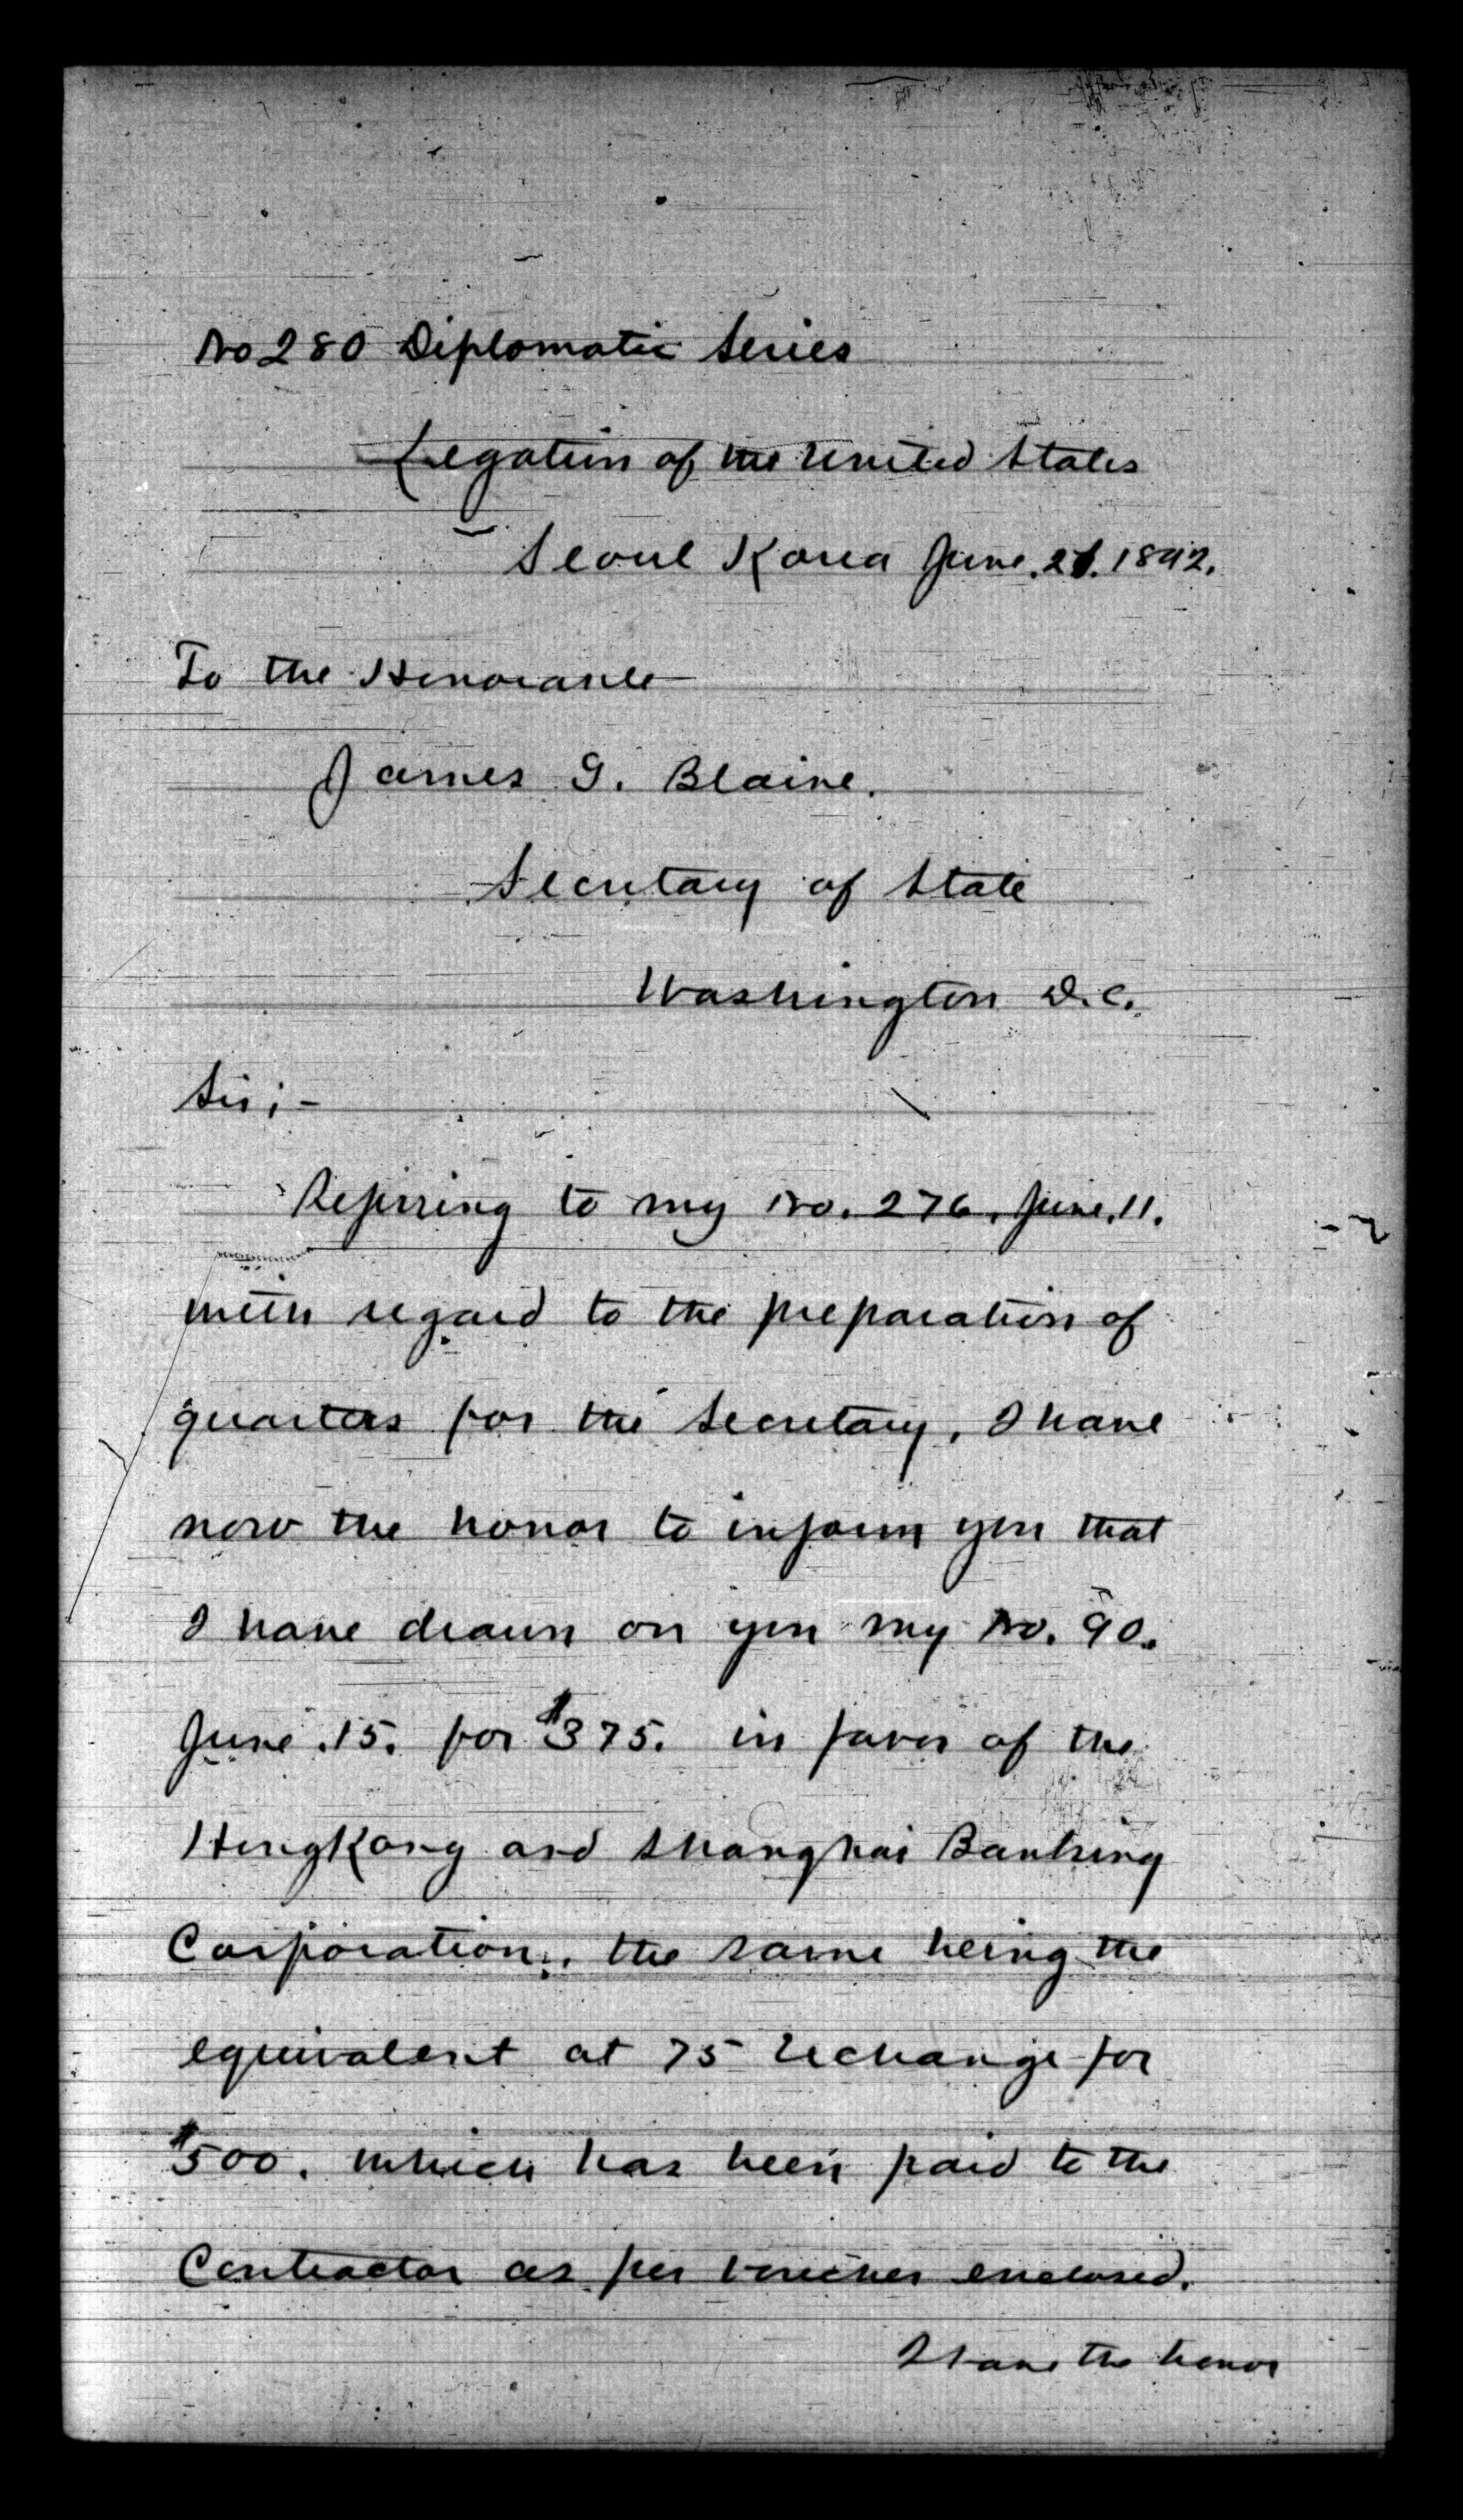 No 280 Diplomatic Series
Legation of the United States
Seoul Korea June. 21. 1892.
To the Honorable
James G. Blaine.
Secretary of State
Washington D.C.
Sir; -
Referring to my No. 276, June, 11.
with regard to the preparation of
quarters for the Secretary, I have
now the honor to inform you that
I have drawn on you my No. 90.
June. 15. for $375. in favor of the
HongKong and Shanghai Banking
Corporation, the same being the
equivalent at 75 exchange for
$500. which has been paid to the
Contractor as per voucher enclosed.
I have the honor